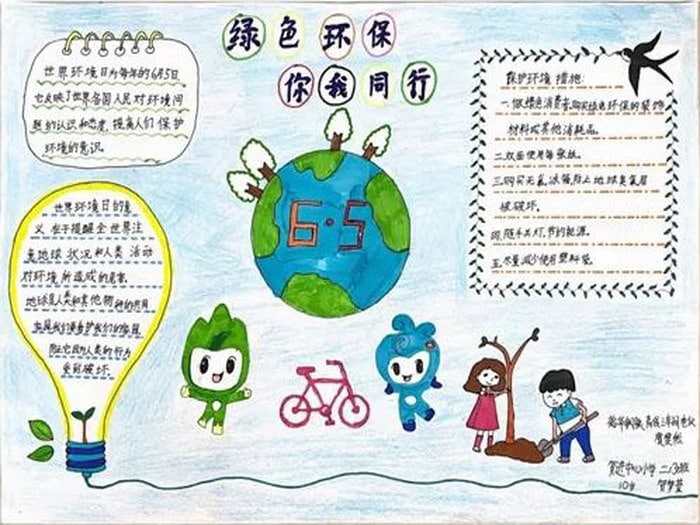 绿色环保
你我同行
世界环境日为每年的6月5日,
它反映了世界各国人民对环境问
题的认识和态度,提高人们保护
环境的意识.
6·5
世界环境日的意
义在于提醒全世界注
意地球状况和人类活动
对环境所造成的危害.
地球是人类和其他物种的共同
家园
人类的行为
受到破坏.
保护环境措施:
一.做绿色消费者,购买绿色环保的装饰
材料或其他消耗品.
二.双面使用每张纸.
三.购买无氟冰箱,防止地球臭氧层
被破坏.
四.随手关灯,节约能源.
五.尽量减少使用塑料袋.
中心小学 二(3)班
10岁